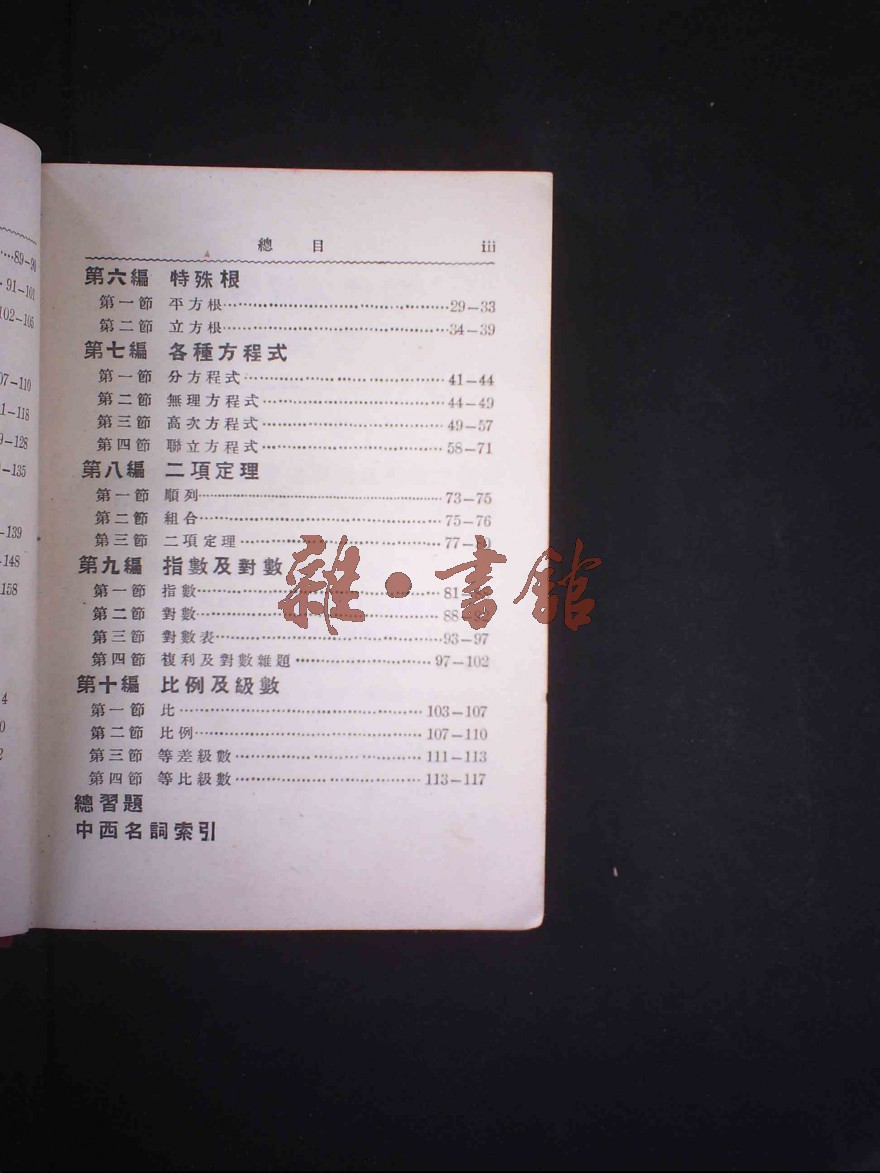 89-90
91-101
102-105
07-110
1-118
9-128
-135
-139
-148
158
4
0
2
總目 iii
第六編 特殊根
第一節 平方根 29-33
第二節 立方根 34-39
第七編 各種方程式
第一節 分方程式 41-44
第二節 無理方程式 44-49
第三節 高次方程式 49-57
第四節 聯立方程式 58-71
第八編 二項定理
第一節 順列 73-75
第二節 組合 75-76
第三節 二項定理 77-
第九編 指數及對數
第一節 指數 81-
第二節 對數 88-
第三節 對數表 93-97
第四節 複利及對數雜題 97-102
第十編 比例及級數
第一節 比 103-107
第二節 比例 107-110
第三節 等差級數 111-113
第四節 等比級數 113-117
總習題
中西名詞索引
雜·書館